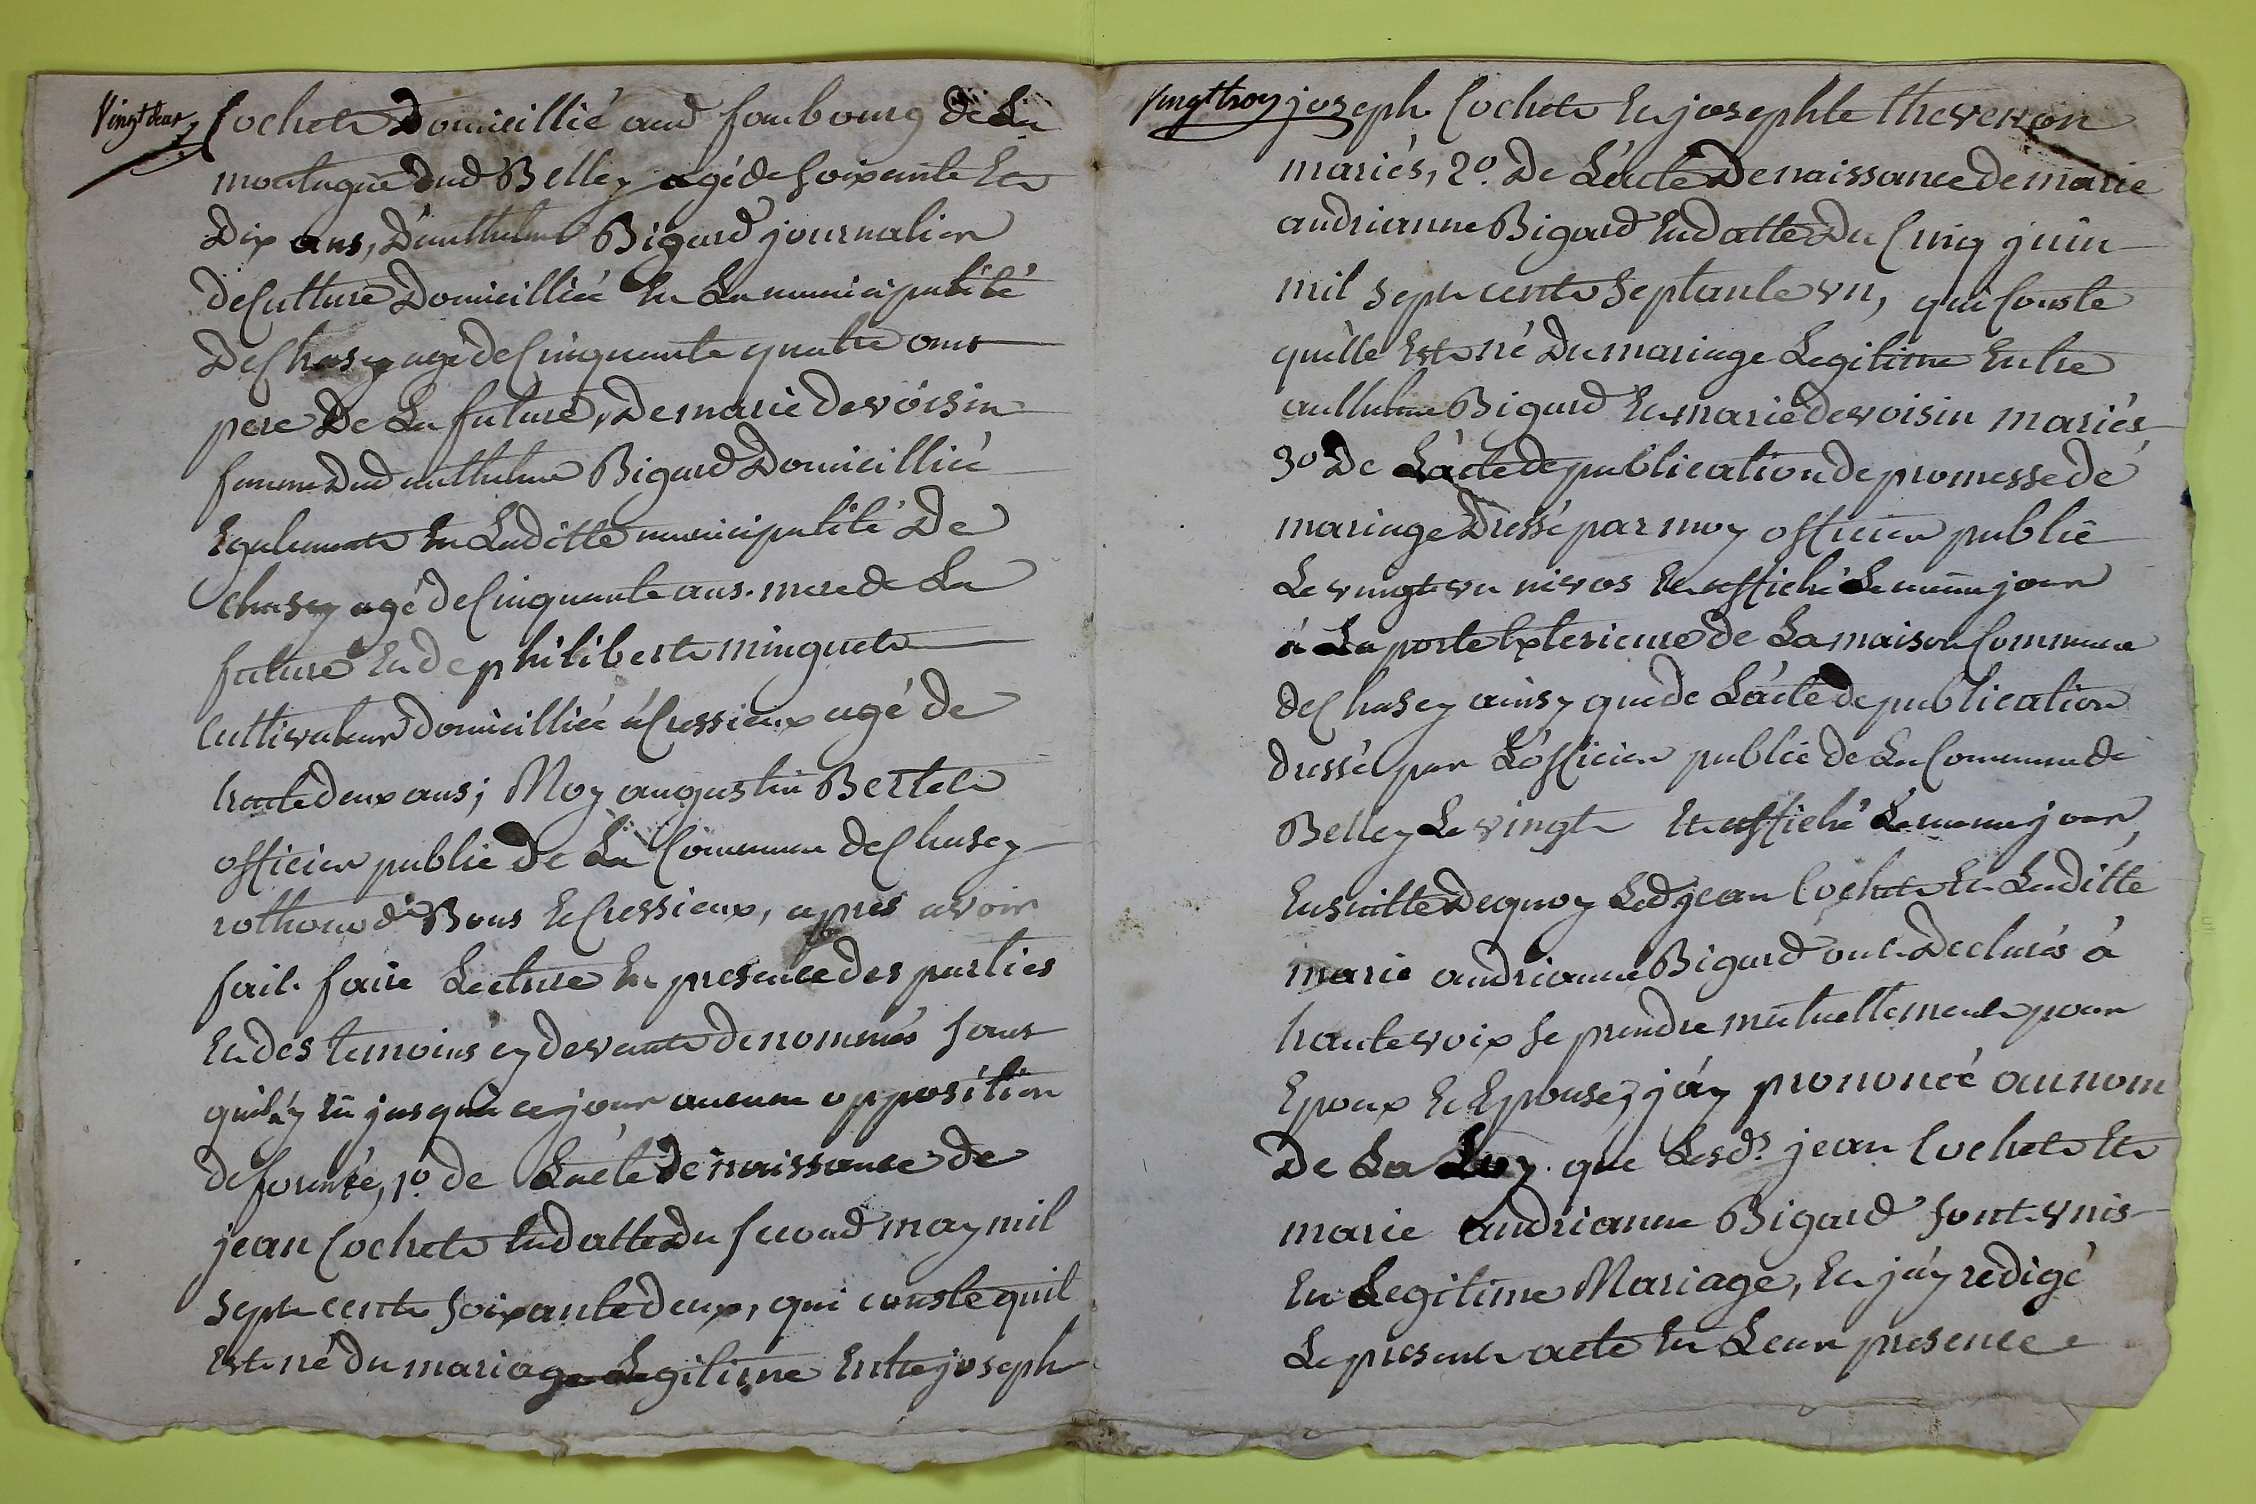 Vingt deux
Cochet Domicillié aud faubourg de La
montagne dud Belley agé de soixante et
Dix ans, D'anthelme Bigard journalier
de Culture Domicillié en La municipalité
De Chasey agé de Cinquante quatre ans
pere De La future, De marie devoisin
femme Dud anthelme Bigard Domicillié
Egalement en Laditte municipalité De
Chasey agé de Cinquante ans. mere de La
future et de philibert minguet
Cultivateur domicillié à Cressieux agé de
trante deux ans; Moy augustin Bertet
officier public De La Commune de Chasey
rothonod Bons et Cressieux, apres avoir
fait faire Lecture en presence des parties
et des temoins cy devant denommés sans
quil ÿ eu jusqua ce jour aucune opposition
de formée, 1º. de L'acte de naissance de
jean Cochet en datte du second may mil
sept cent soixante deux, qui conste quil
est né du mariage Legitime entre joseph
Vingt troy
joseph Cochet et josephte thevenon
mariés, 2º. De L'acte De naissance de marie
andrianne Bigard en datte Du Cinq juin
mil sept cent septante un, qui Conste
quelle est né Du mariage Legitime entre
anthelme Bigard et marie devoisin mariés
3º De L'acte de publication de promesse de
mariage Dressé par moy officier public
Le vingt un nivos et affiché Le même jour
à La porte Exterieure de La maison Commune
de Chasey ainsy que de L'acte de publication
dressé par L'officier public de La Commune de
Belley Le vingt et affiché Le meme jour,
Ensuitte De quoy Led jean Cochet et Laditte
marie andrianne Bigard ont Declarés à
haute voix se prendre mutuellement pour
Epoux et Epouse, j'aÿ prononcé au nom
De La Loy. que Lesds. jean Cochet et
marie andrianne Bigard sont unis
En Legitime Mariage, et j'aÿ redigé
Le present acte en Leur presence